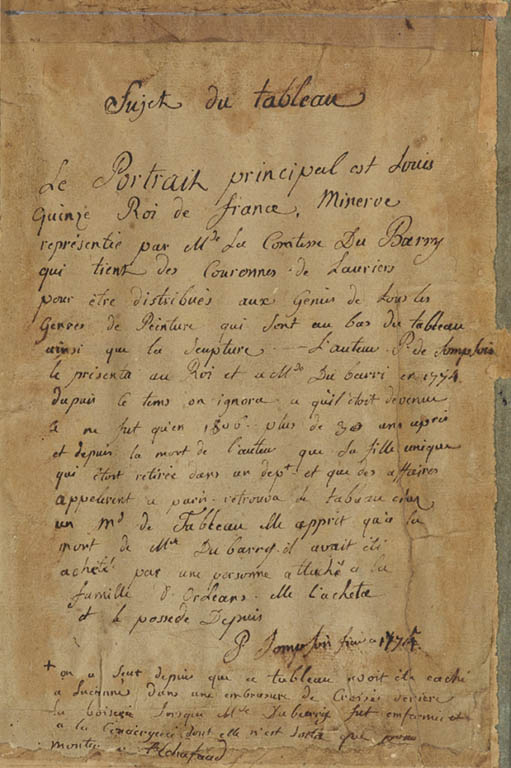 Sujet du tableau
Le Portrait principal est Louis
Quinze Roi de france, Minerve
représentée par Mde La Comtesse Du Barry
qui tient des Couronnes de Lauriers
pour être distribués aux Genies de tous les
Genres de Peinture qui sont au bas du tableau
ainsi que la Sculpture — L'auteur P. de
le présenta au Roi et a Mde Dubarri en 1774.
depuis ce tems on ignora a quil étoit devenu
ce ne fut qu'en 1806 plus de 30 ans après
et depuis la mort de l'auteur que sa fille unique
qui étoit retirée dans un dept. et que des affaires
appelèrent a paris retrouva ce tableau chez
un md de Tableau elle apprit qu'a la
mort de Mde Dubarry il avait été
acheté par une personne attaché a la
famille d'Orleans. elle l'acheta
et le possede Depuis
P 1774.
+ on a seut depuis que ce tableau avoit été caché
a dans une embrasure de Croisée
la boiserie lorsque Mde Dubarry fut enfermée et
a la dont elle n'est sortie que pour
monter a l'echafaud